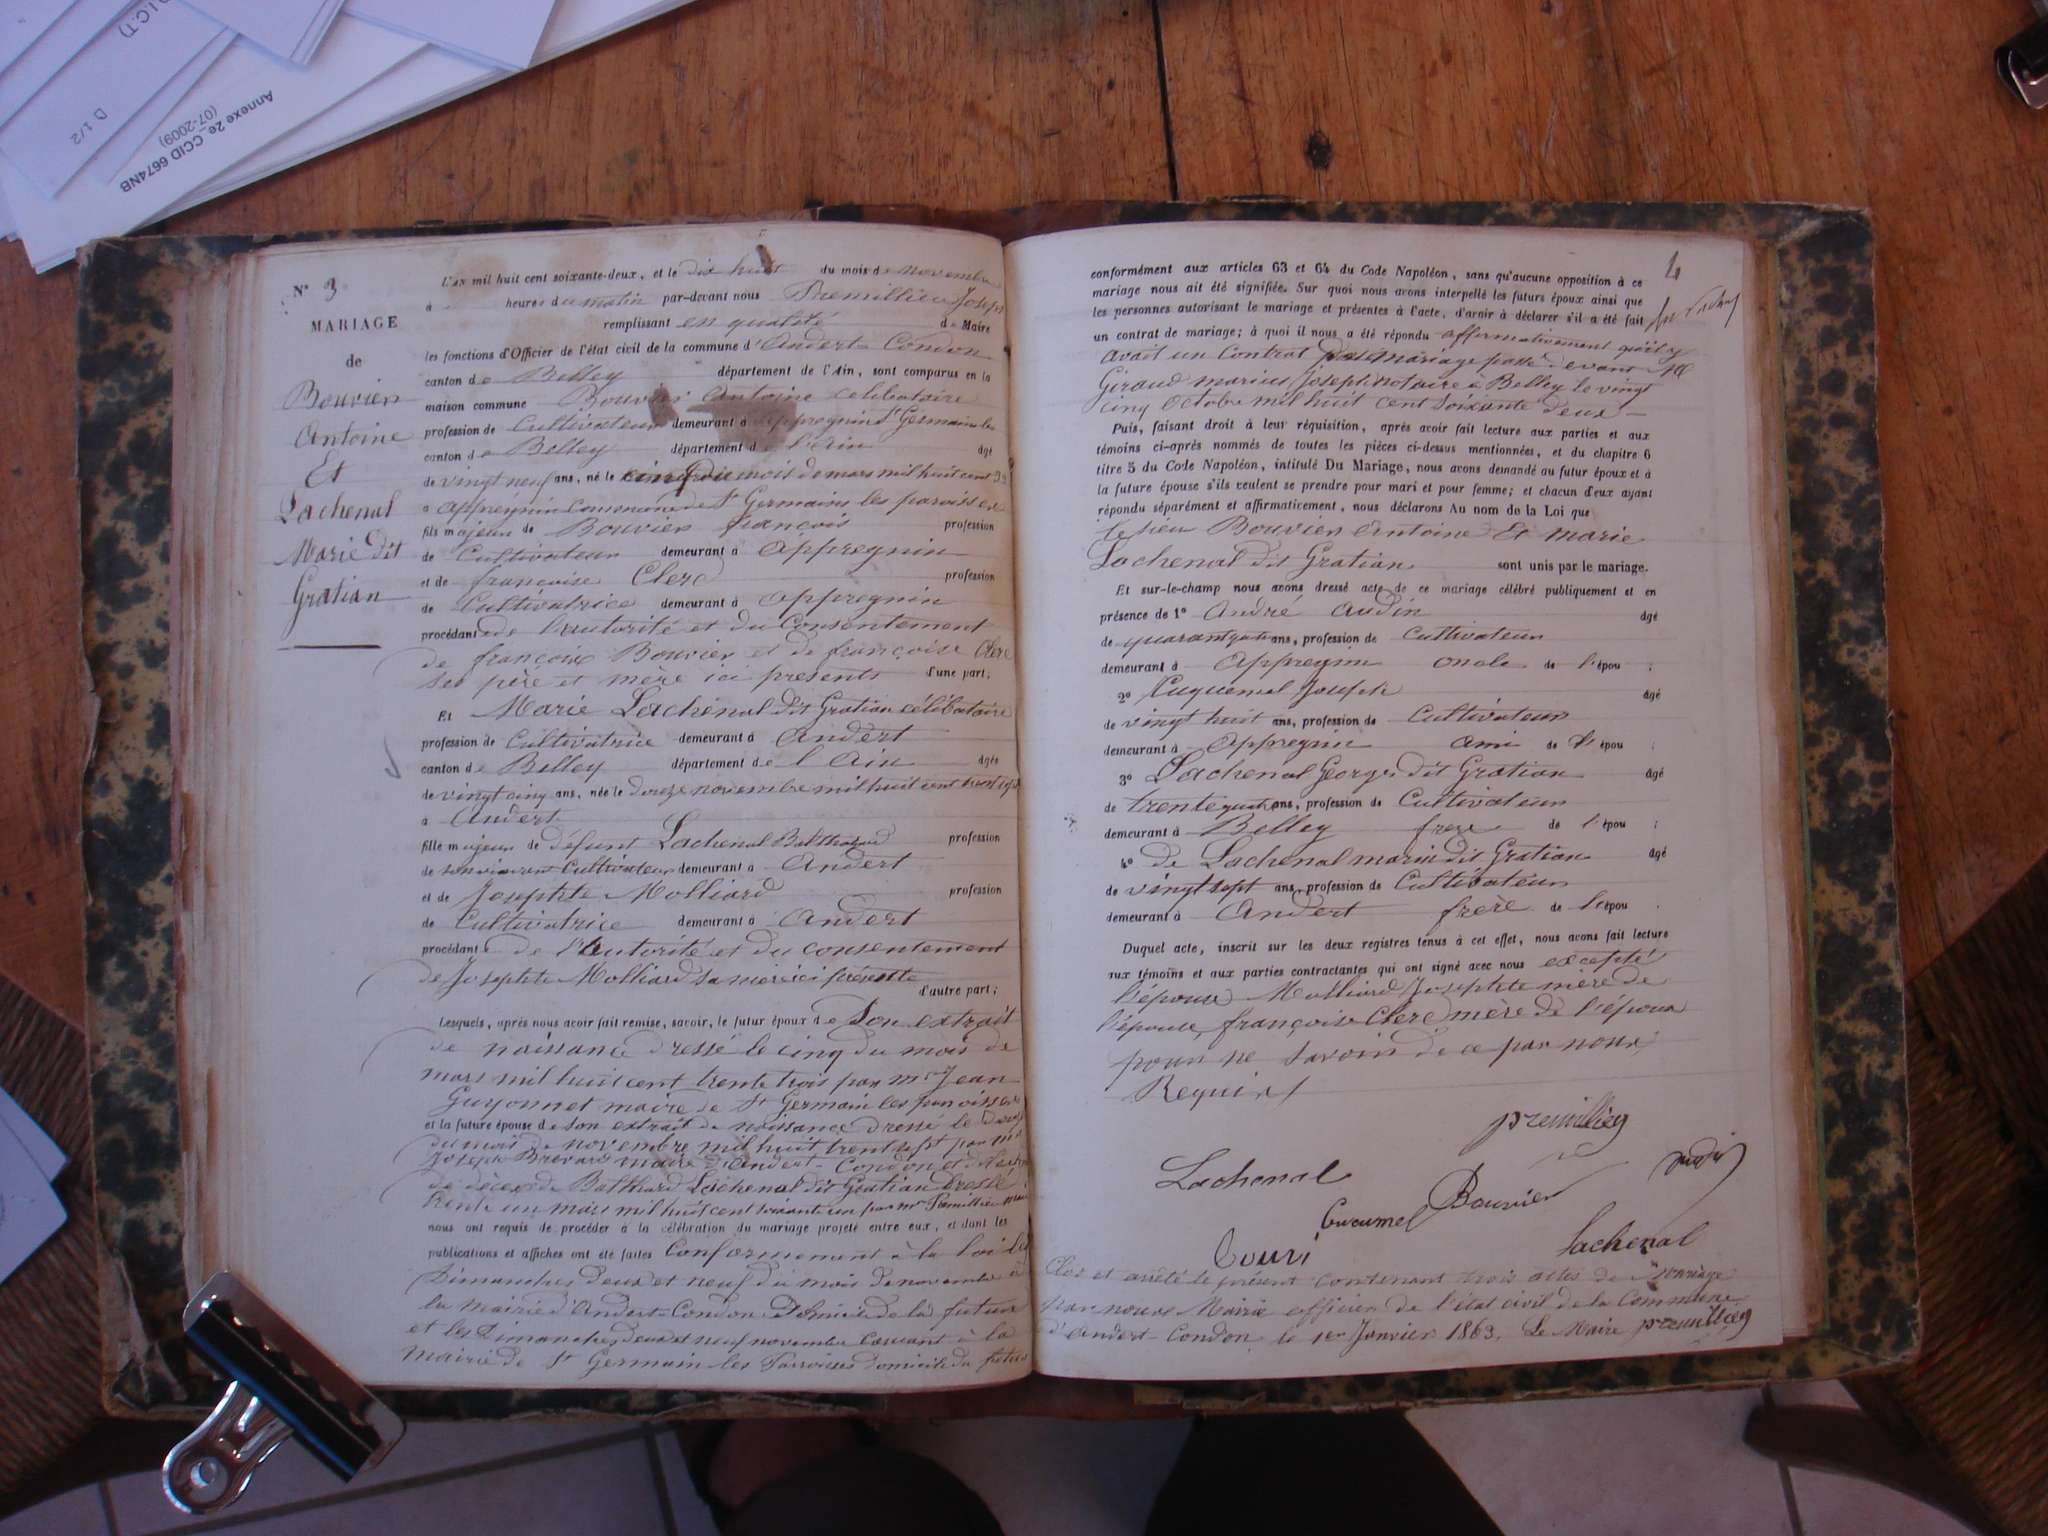 D.I.C.T)
D 1/2
Annexe 2e_CCID 6674NB
(07-2009)
N° 3
MARIAGE
de
Bouvier
Antoine
Et
Lachenal
Marie dit
Gratian
L'AN mil huit cent soixante-deux, et le dix huit du mois de novembre
à heures du matin par-devant nous Premillieu Joseph
remplissant en qualité de Maire
les fonctions d'Officier de l'état civil de la commune d'Andert-Condon
canton de Belley département de l'Ain, sont comparus en la
maison commune Bouvier Antoine celibataire
profession de Cultivateur demeurant à Appregnin St Germain les
canton de Belley département de l'Ain âgé
de vingt neuf ans, né le cinq du mois de mars mil huit cent 33
à appregnin Commune de St Germain les paroisses
fils majeur de Bouvier françois profession
de Cultivateur demeurant à Appregnin
et de françoise Clerc profession
de Cultivatrice demeurant à appregnin
procédant de l'autorité et du Consentement
de françois Bouvier et de françoise Clerc
ses père et mère ici présents d'une part;
Et Marie Lachenal dit Gratian célibataire
profession de Cultivatrice demeurant à Andert
canton de Belley département de l'Ain âgée
de vingt cinq ans, née le douze novembre mil huit cent trente sept
à Andert
fille majeure de défunt Lachenal Balthazard profession
de son vivant Cultivateur demeurant à Andert
et de Josephte Molliard profession
de Cultivatrice demeurant à Andert
procédante de l'autorité et du consentement
de Josephte Molliard sa mère ici présente
d'autre part;
Lesquels, après nous avoir fait remise, savoir, le futur époux de Son extrait
de naissance dressé le cinq du mois de
mars mil huit cent trente trois par mr Jean
Guyonnet maire de St Germain les paroisses
et la future épouse de son extrait de naissance dressé le douze
du mois de novembre mil huit trente sept par mr
Joseph maire d'Andert-Condon et de l'acte
de décès de Balthard Lachenal dit Gratian dressé
trente un mars mil huit cent soixante un par mr Premillieu maire
nous ont requis de procéder à la célébration du mariage projeté entre eux, et dont les
publications et affiches ont été faites Conformement à la loi les
Dimanches deux et neuf du mois de novembre à
la mairie d'Andert-Condon Domicile de la future
et les Dimanches deux et neuf novembre Courant à la
Mairie de St Germain les Parroisses domicile du futur
4
conformément aux articles 63 et 64 du Code Napoléon, sans qu'aucune opposition à ce
mariage nous ait été signifiée. Sur quoi nous avons interpellé les futurs époux ainsi que
les personnes autorisant le mariage et présentes à l'acte, d'avoir à déclarer s'il a été fait
un contrat de mariage; à quoi il nous a été répondu affirmativement qu'il y
avait un Contrat de mariage passé devant Me
Giraud marius Joseph notaire à Belley le vingt
cinq Octobre mil huit cent soixante deux
Puis, faisant droit à leur réquisition, après avoir fait lecture aux parties et aux
témoins ci-après nommés de toutes les pièces ci-dessus mentionnées, et du chapitre 6
titre 5 du Code Napoléon, intitulé Du Mariage, nous avons demandé au futur époux et à
la future épouse s'ils veulent se prendre pour mari et pour femme; et chacun d'eux ayant
répondu séparément et affirmativement, nous déclarons Au nom de la Loi que
le sieur Bouvier Antoine Et Marie
Lachenal dit Gratian sont unis par le mariage.
Et sur-le-champ nous avons dressé acte de ce mariage célébré publiquement et en
présence de 1° André Audin âgé
de ans, profession de Cultivateur
demeurant à Appregnin oncle de l'épou ;
2° Cuquemel Joseph âgé
de vingt huit ans, profession de Cultivateur
demeurant à Appregnin ami de l'épou ;
3° Lachenal Georges dit Gratian âgé
de trente quatre ans, profession de Cultivateur
demeurant à Belley frere de l'épou ;
4° de Lachenal marin dit Gratian âgé
de vingt sept ans, profession de Cultivateur
demeurant à Andert frère de l'épou .
Duquel acte, inscrit sur les deux registres tenus à cet effet, nous avons fait lecture
aux témoins et aux parties contractantes qui ont signé avec nous excepté
l'épouse Molliard Josephte mère de
l'épouse françoise Clerc mère de l'époux
pour ne savoir de ce par nous
Requis
premillieu
Lachenal
Bouvier
audin
Cucumel
Lachenal
Clos et arrêté le présent contenant trois actes de mariage
par nous Maire officier de l'état civil de la Commune
d'Andert-Condon le 1er Janvier 1863. Le Maire premillieu